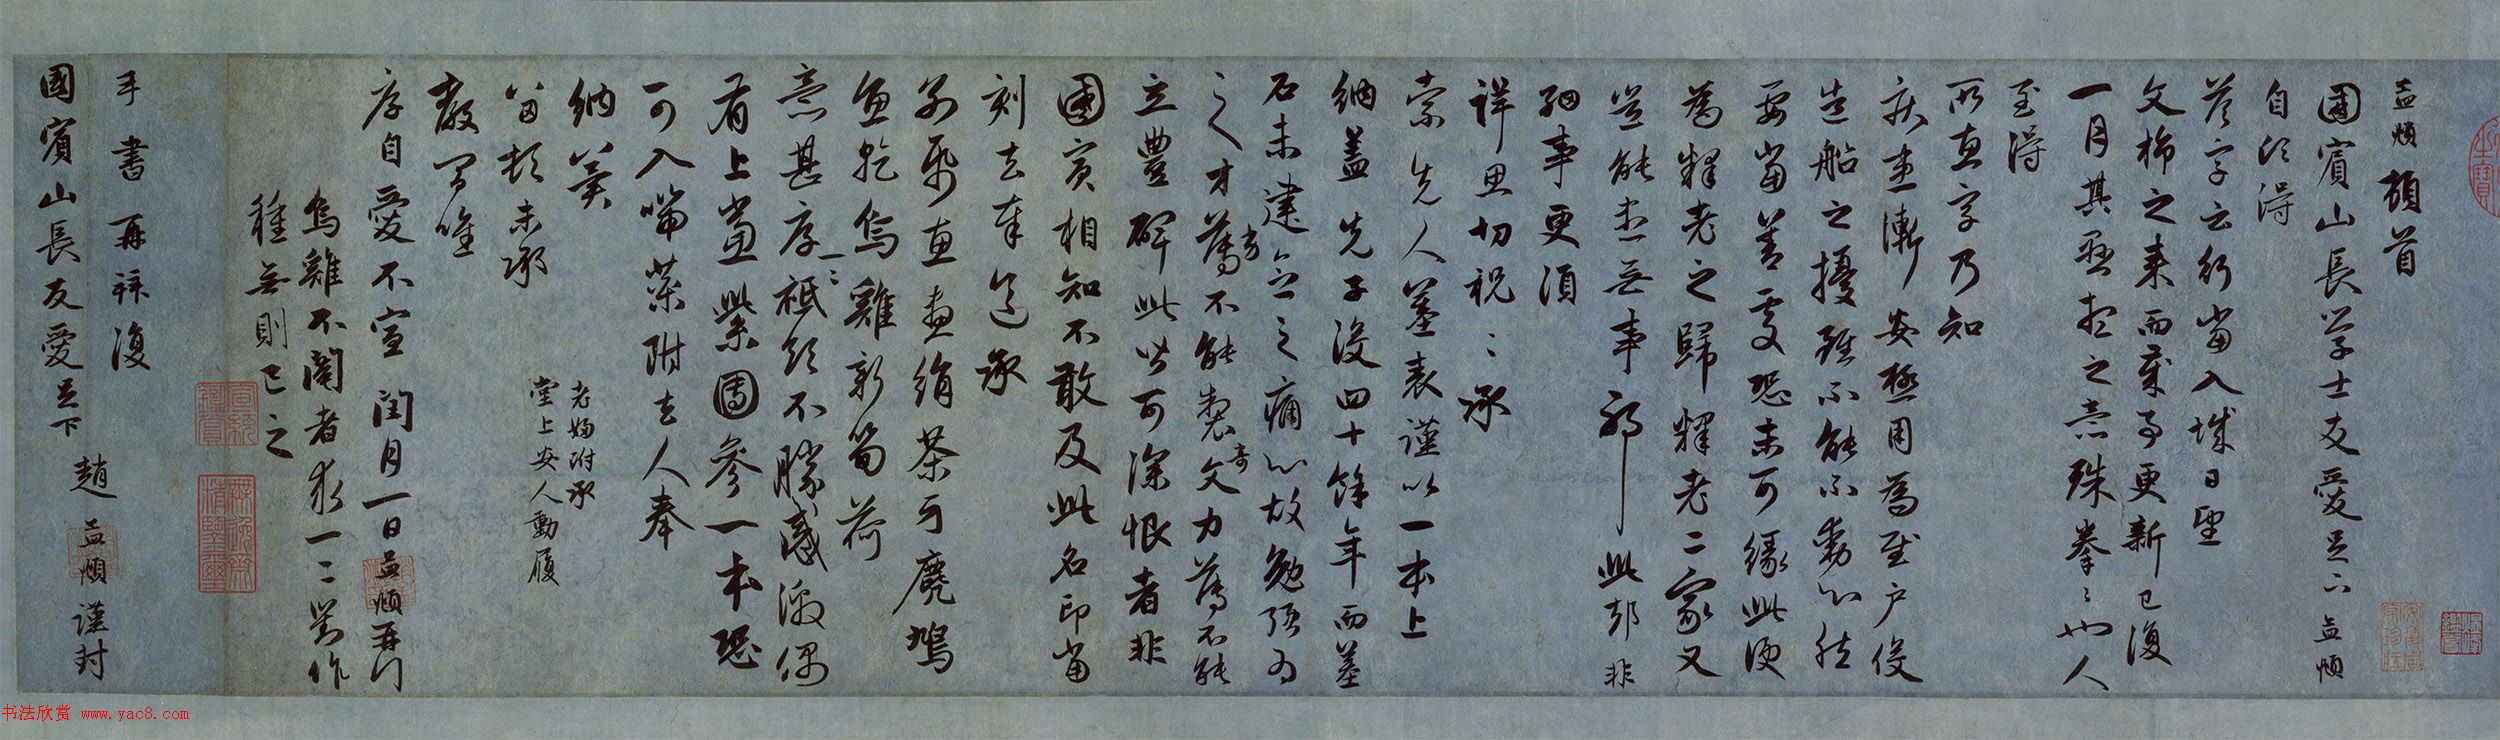 孟頫頓首
國賓山長學士友愛足下孟頫
自領得
答字云行當入城日望
文旆之來而萬事更新已復
一月其懸想之意殊拳ミ也人
至得
所惠字乃知
疾患漸安極用為慰戶役
造船之擾雖不能不動心然
要當善處恐未可緣此便
為釋老之歸釋老二家又
豈能無事耶此部非
細事更須
詳思切祝ミ承
索先人墓表謹以一本上
納蓋先子沒四十餘年而墓
石未建念之痛心故勉強為
之人才薄劣不能製奇文力薄不能
立豐碑此皆可深恨者非
國賓相知不敢及此名印當
刻去奉送承
別紙惠畫絹茶牙麂鳩
魚乾烏雞新筍荷
意甚厚一ミ祗領不勝感激偶
有上黨紫團參一本恐
可入喘藥附去人奉
納冀
留頓未承
教間唯
老婦附承
堂上安人動履
厚自愛不宣閏月一日孟頫再行
烏雞不闍者求一二對作
種無則已之
手書再拜復
國賓山長友愛足下
趙孟頫謹封
書法欣賞 www.yac8.com